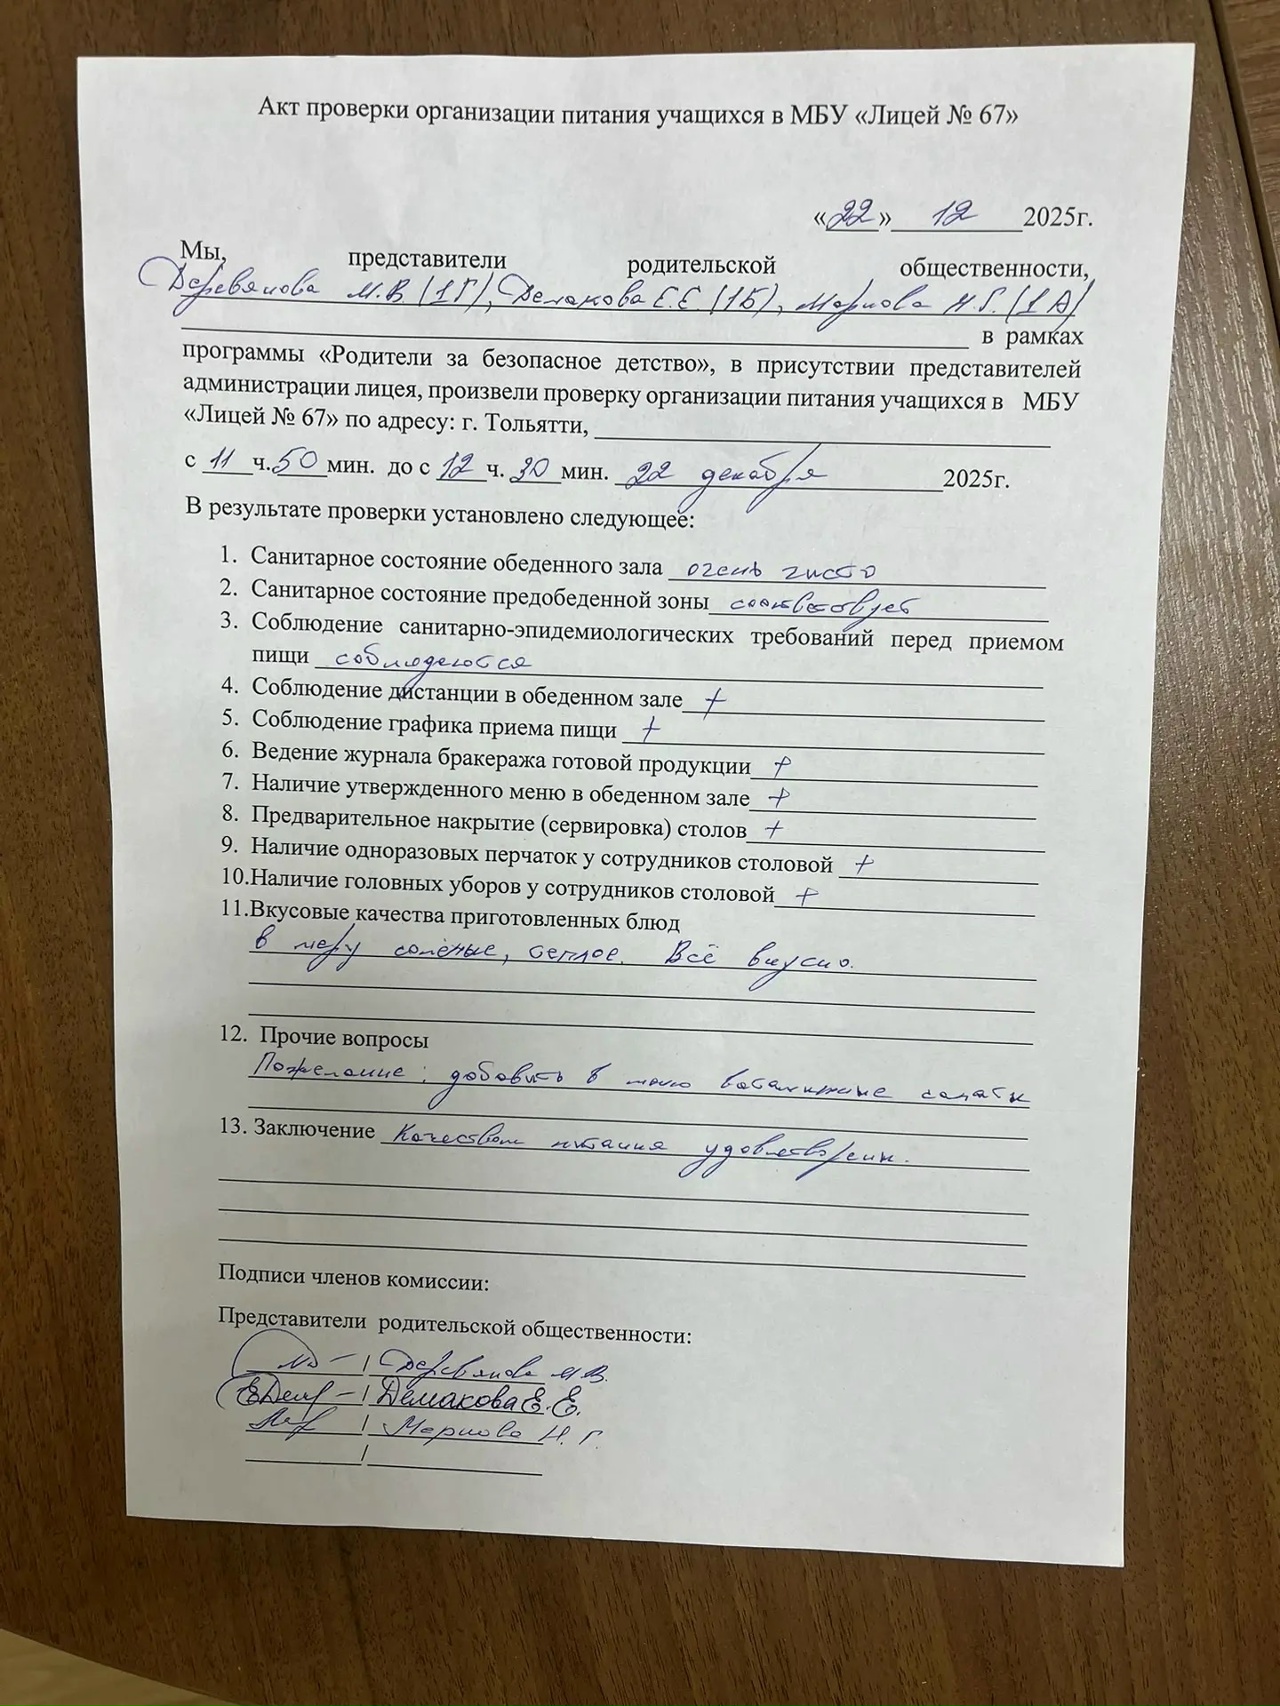 Акт проверки организации питания учащихся в МБУ «Лицей № 67»
«22» 12 2025г.
Мы, представители родительской общественности,
Деревянова М.В (1Г), Демакова Е.Е. (1Б), Маркова Н.Г. (1А)
в рамках
программы «Родители за безопасное детство», в присутствии представителей
администрации лицея, произвели проверку организации питания учащихся в МБУ
«Лицей № 67» по адресу: г. Тольятти,
с 11 ч. 50 мин. до с 12 ч. 30 мин. 22 декабря 2025г.
В результате проверки установлено следующее:
1. Санитарное состояние обеденного зала очень чисто
2. Санитарное состояние предобеденной зоны соответствует
3. Соблюдение санитарно-эпидемиологических требований перед приемом
пищи соблюдаются
4. Соблюдение дистанции в обеденном зале +
5. Соблюдение графика приема пищи +
6. Ведение журнала бракеража готовой продукции +
7. Наличие утвержденного меню в обеденном зале +
8. Предварительное накрытие (сервировка) столов +
9. Наличие одноразовых перчаток у сотрудников столовой +
10.Наличие головных уборов у сотрудников столовой +
11.Вкусовые качества приготовленных блюд
в меру солёные, теплое. Всё вкусно.
12. Прочие вопросы
Пожелание: добавить в меню витаминные салаты
13. Заключение Качеством питания удовлетворены.
Подписи членов комиссии:
Представители родительской общественности:
/ Деревянова М.В.
/ Демакова Е.Е.
/ Маркова Н.Г.
/